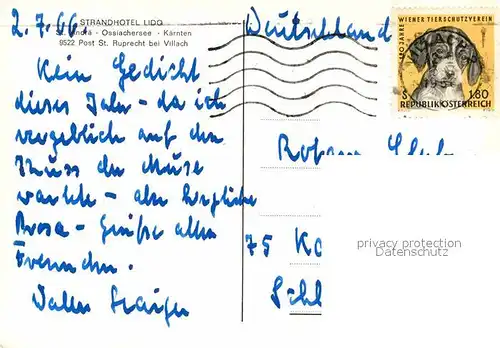 2.7.66.
STRANDHOTEL LIDO
St. Andrä - Ossiachersee - Kärnten
9522 Post St. Ruprecht bei Villach
Kein Gedicht
dieses Jahr - da ich
vergeblich auf den
Kuss der Muse
warte - aber
Prosa - Grüße allen
Freunden.
Deutschland
120 JAHRE WIENER TIERSCHUTZVEREIN
S 1.80
REPUBLIK ÖSTERREICH
75 Ka
Schl
privacy protection
Datenschutz